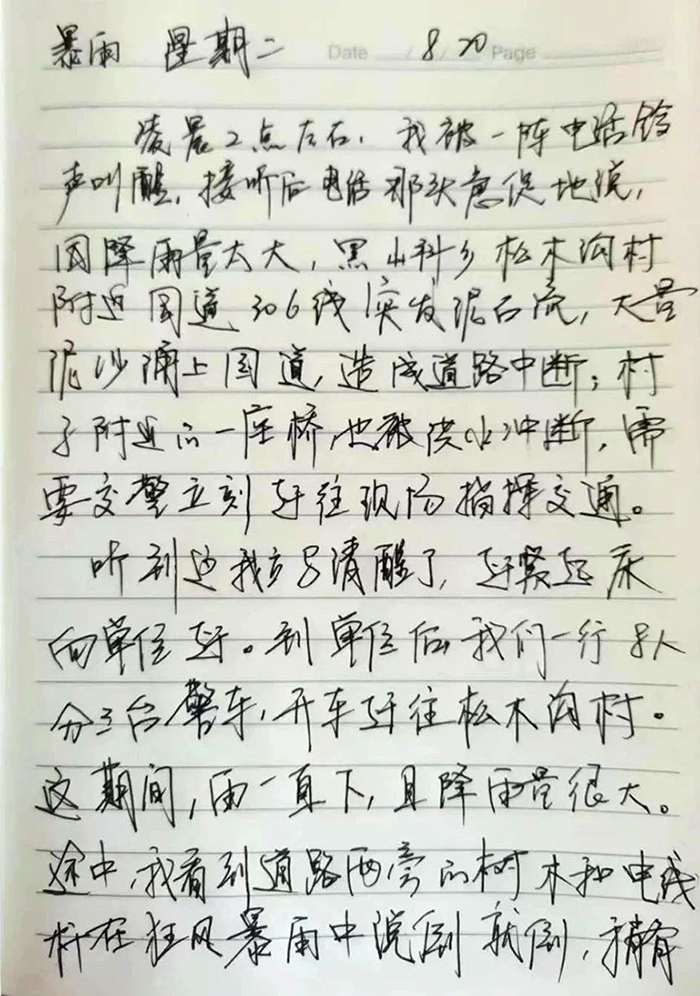 暴雨 星期二 Date / / 8 20 Page
凌晨2点左右，我被一阵电话铃
声叫醒，接听后电话那头急促地说，
因降雨量太大，黑山科乡松木沟村
附近国道306线突发泥石流，大量
泥沙涌上国道，造成道路中断；村
子附近的一座桥，也被洪水冲断，需
要交警立刻赶往现场指挥交通。
听到这我立马清醒了，赶紧起床
向单位赶。到单位后我们一行8人
分三台警车，开车赶往松木沟村。
这期间，雨一直下，且降雨量很大。
途中，我看到道路两旁的树木和电线
杆在狂风暴雨中说倒就倒，稍有